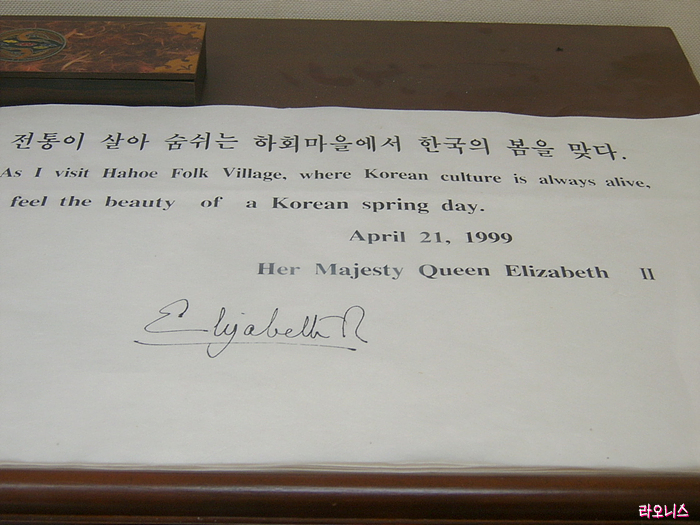 전통이 살아 숨쉬는 하회마을에서 한국의 봄을 맞다.
As I visit Hahoe Folk Village, where Korean culture is always alive,
feel the beauty of a Korean spring day.
April 21, 1999
Her Majesty Queen Elizabeth II
Elizabeth R
라오니스